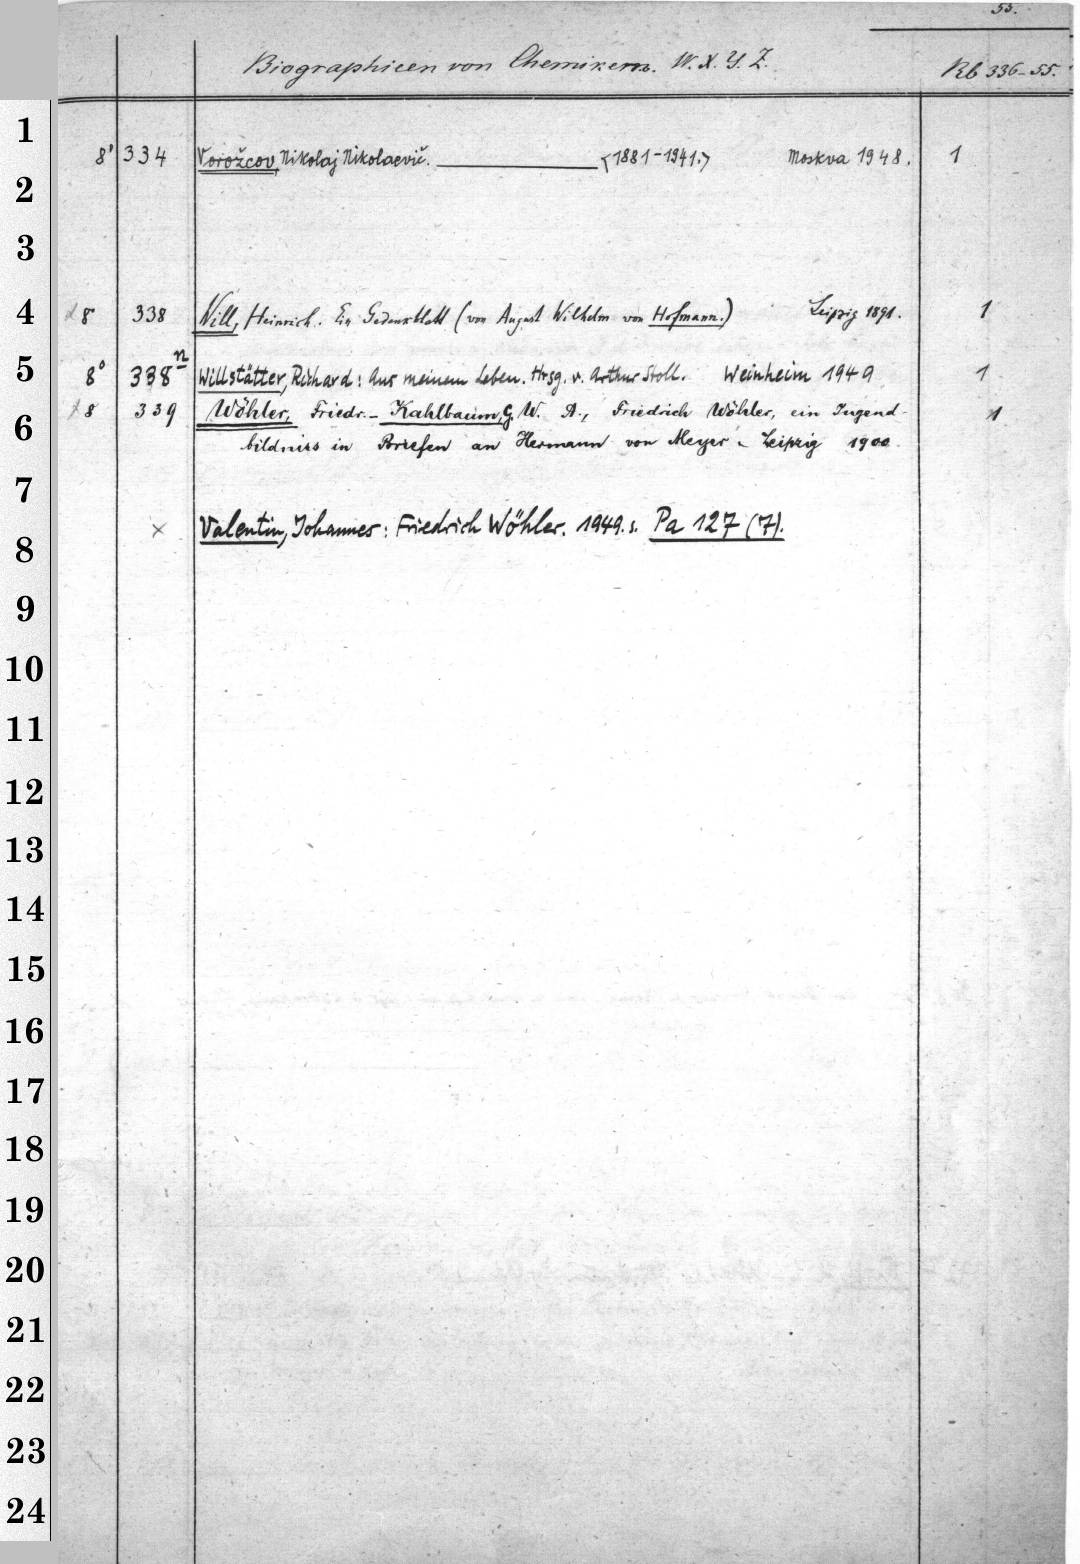 53.
Biographieen von Chemikern. W. X. Y. Z.
Rb 336-55.
1
8° 334 Vorožcov, Nikolaj Nikolaevič. <1881-1941.> Moskva 1948. 1
2
3
4 8° 338 Will, Heinrich. Ein Gedenkblatt (von August Wilhelm von Hofmann.) Leipzig 1891. 1
5 8° 338 n Willstätter, Richard: Aus meinem Leben. Hrsg. v. Arthur Stoll. Weinheim 1949 1
8 339 Wöhler, Friedr. - Kahlbaum, G. W. A., Friedrich Wöhler, ein Jugend- 1
6 bildniss in Briefen an Hermann von Meyer - Leipzig 1900.
7
x Valentin, Johannes: Friedrich Wöhler. 1949. s. Pa 127 (7).
8
9
10
11
12
13
14
15
16
17
18
19
20
21
22
23
24